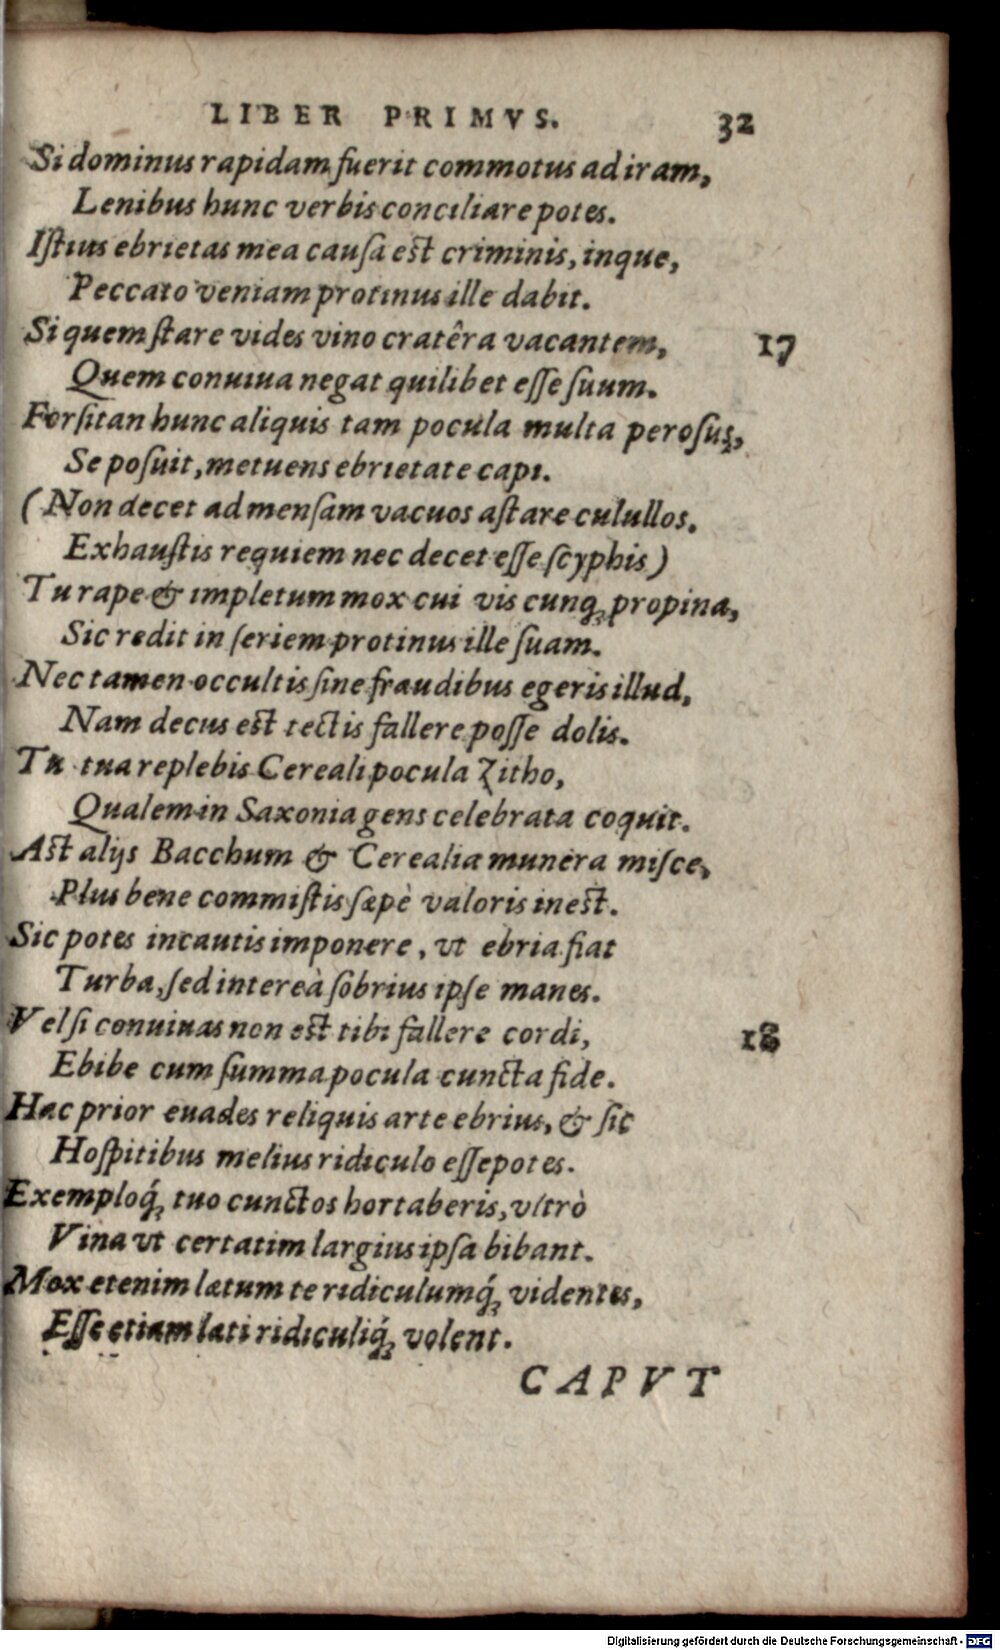 LIBER PRIMVS. 32
Si dominus rapidam fuerit commotus ad iram,
Lenibus hunc verbis conciliare potes.
Iſtius ebrietas mea cauſa eſt criminis, inque,
Peccato veniam protinus ille dabit.
Si quem ſtare vides vino cratêra vacantem, 17
Quem conuiua negat quilibet eſſe ſuum.
Forſitan hunc aliquis tam pocula multa peroſus,
Se poſuit, metuens ebrietate capi.
(Non decet ad menſam vacuos aſtare culullos.
Exhauſtis requiem nec decet eſſe ſcyphis)
Tu rape & impletum mox cui vis cunq; propina,
Sic redit in ſeriem protinus ille ſuam.
Nec tamen occultis ſine fraudibus egeris illud,
Nam decus eſt tectis fallere poſſe dolis.
Tu tua replebis Cereali pocula Zitho,
Qualem in Saxonia gens celebrata coquit.
Aſt alijs Bacchum & Cerealia munera miſce,
Plus bene commiſtis ſæpè valoris ineſt.
Sic potes incautis imponere, vt ebria fiat
Turba, ſed intereà ſobrius ipſe manes.
Vel ſi conuiuas non eſt tibi fallere cordi, 18
Ebibe cum ſumma pocula cuncta fide.
Hac prior euades reliquis arte ebrius, & ſic
Hoſpitibus melius ridiculo eſſe potes.
Exemploq́; tuo cunctos hortaberis, vltrò
Vina vt certatim largius ipſa bibant.
Mox etenim lætum te ridiculumq́; videntes,
Eſſe etiam lati ridiculiq́; volent.
CAPVT
Digitalisierung gefördert durch die Deutsche Forschungsgemeinschaft - DFG